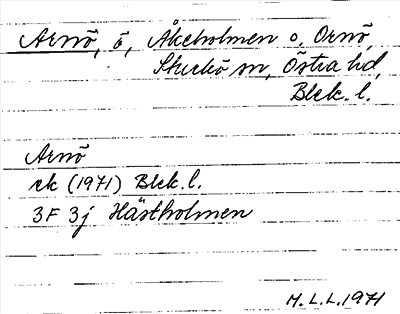 Arnö, ö, Åkeholmen o, Ornö,
Sturkö sn, Östra hd,
Blek. l.
Arnö
ek (1971) Blek. l.
3F 3j Hästholmen
M.L.L. 1971